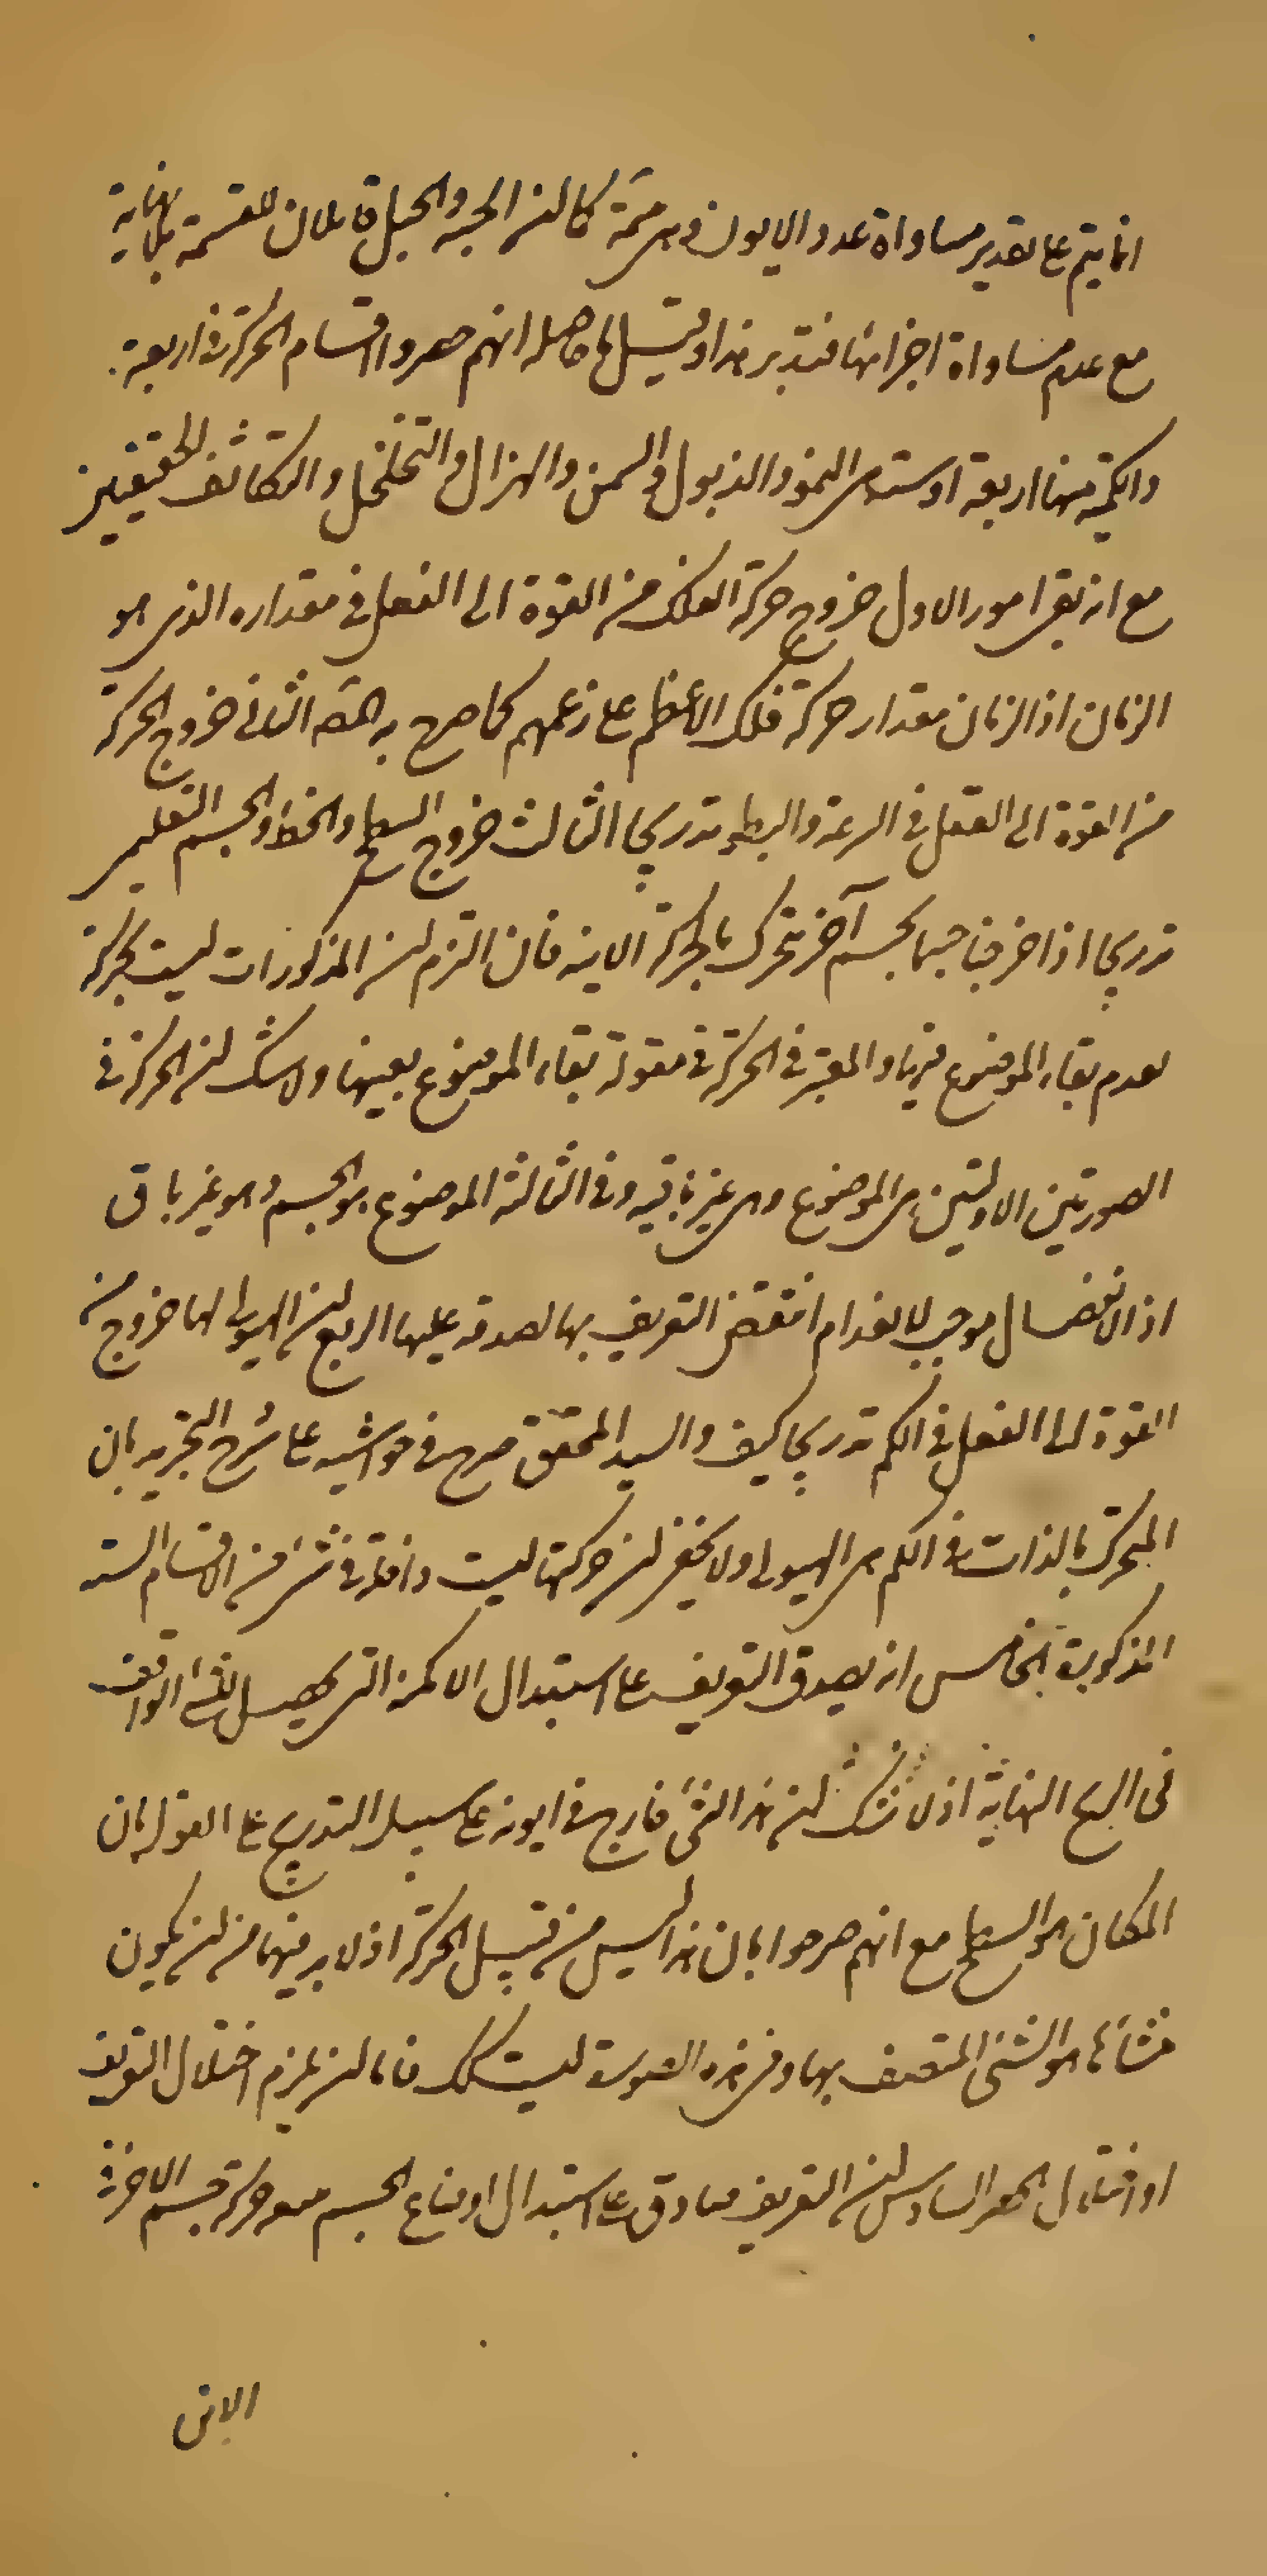 انما يتم على تقدير مساواة عدد الايون وهى ممّة كما ان الحبة والجبل قابلان للقسمة بلا نهاية
مع عدم مساواة اجزائها فتدبر هذا وقيل ما حاصله انهم حصروا اقسام الحركة فى اربعة
والكمية منها اربعة او ستة هى النمو والذبول والسمن والهزال والتخلخل والتكاثف الحقيقيين
مع انه بقى امور الاول خروج حركة الفلك من القوة الى الفعل فى مقداره الذى هو
الزمان اذ الزمان مقدار حركة فلك الاعظم على زعمهم كما صرح به المص الثانى خروج الحركة
من القوة الى الفعل فى السرعة والبطوء تدريجا الثالث خروج السطح والخط والجسم التعليمى
تدريجا اذا خرجنا جسما بجسم آخر يتحرك بالحركة الاينية فان التزم ان المذكورات ليست بحركة
لعدم بقاء الموضوع فيها والمعتبر فى الحركة فى مقولة بقاء الموضوع بعينها ولا شك ان الحركة فى
الصورتين الاوليتين هى الموضوع وهى غير باقية وفى الثالثة الموضوع هو الجسم وهو غير باق
اذ الانفصال موجب للانعدام انتقض التعريف بها لصدقه عليها الرابع ان الهيولى لها خروج من
القوة الى الفعل فى الكم تدريجا كيف والسيد المحقق صرح فى حواشيه على شرح التجريد بان
المتحرك بالذات فى الكم هى الهيولى ولا يخفى ان حركتها ليست داخلة فى شئ من الاقسام الستة
المذكورة الخامس انه يصدق التعريف على استبدال الامكنة التى يحصل للشئ الواقف
فى الريح الهابّة اذ لا شك ان هذا الشئ خارج فى ايونه على سبيل التدريج على القول بان
المكان هو السطح مع انهم صرحوا بان هذا ليس من قبيل الحركة اذ لا بد فيها من ان يكون
منشأها هو الشئ المتصف بها وفى هذه الصورة ليست كك فاما ان يلزم اختلال التعريف
او اختلال الحصر السادس ان التعريف صادق على استبدال اوضاع الجسم معه حركة جسم الاخر
الاين